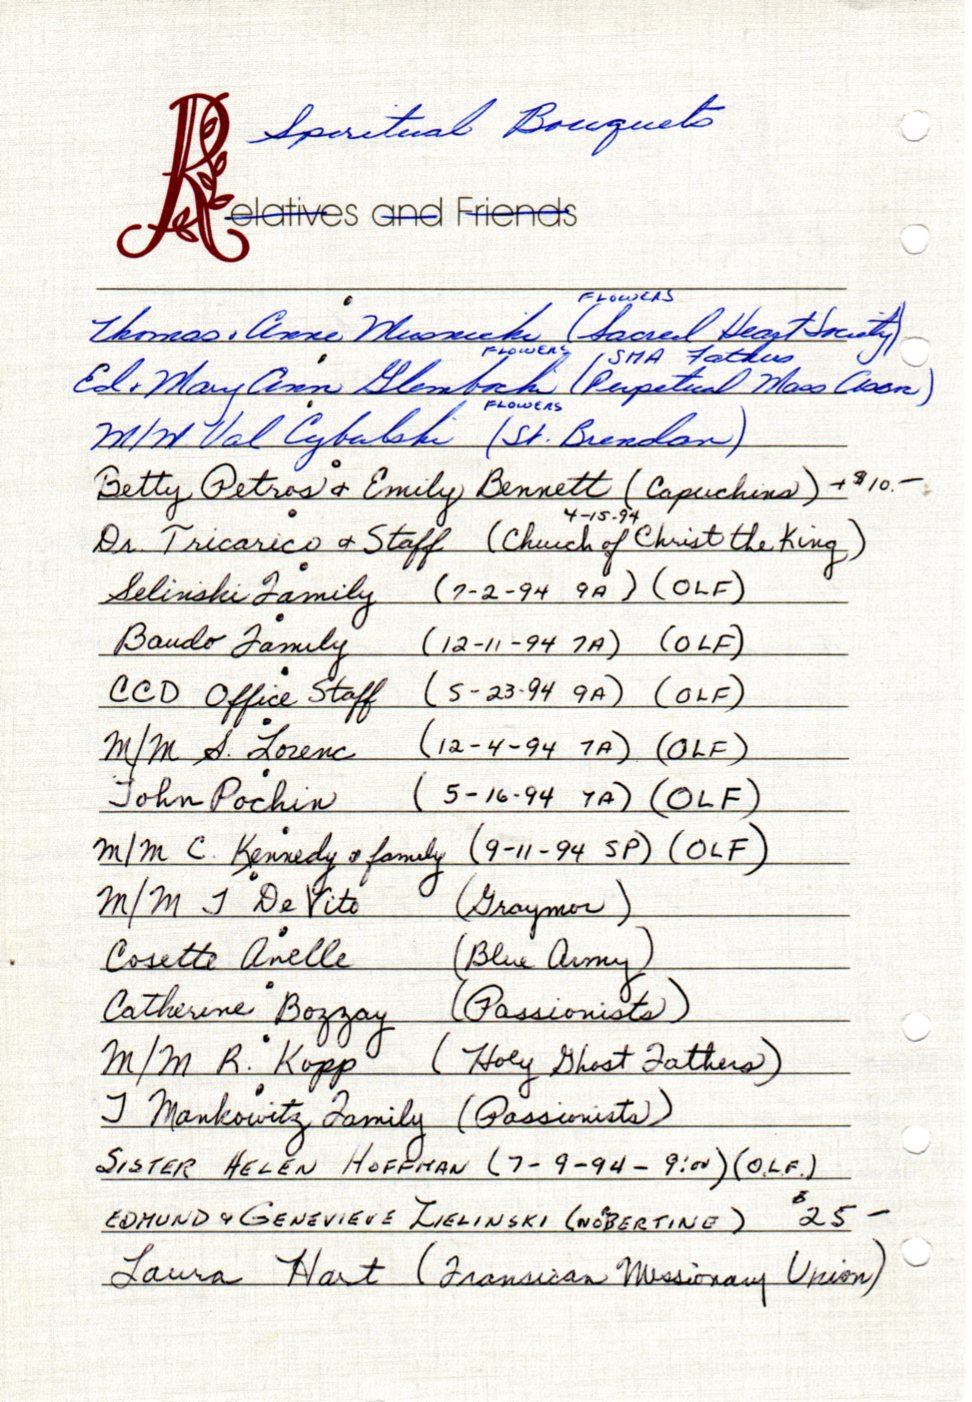 Spiritual Bouquets
Relatives and Friends
FLOWERS
Thomas & Anne Musnicki (Sacred Heart Society)
FLOWERS SMA Fathers
Ed & Mary Ann Glembock (Perpetual Mass Assn)
FLOWERS
M/M Val Cybulski (St. Brendan)
Betty Petros & Emily Bennett (Capuchins) + $10.—
4-15-94
Dr. Tricarico & Staff (Church of Christ the King)
Selinski Family (7-2-94 9A) (OLF)
Baudo Family (12-11-94 7A) (OLF)
CCD Office Staff (5-23-94 9A) (OLF)
M/M S. Lorenc (12-4-94 7A) (OLF)
John Pochin (5-16-94 7A) (OLF)
M/M C. Kennedy & family (9-11-94 5P) (OLF)
M/M J DeVito (Graymor)
Cosette Anelle (Blue Army)
Catherine Bozzay (Passionists)
M/M R. Kopp (Holy Ghost Fathers)
J Mankowitz Family (Passionists)
SISTER HELEN HOFFMAN (7-9-94-9:00) (O.L.F.)
EDMUND & GENEVIEVE ZIELINSKI (NOBERTINE) $25—
Laura Hart (Franciscan Missionary Union)